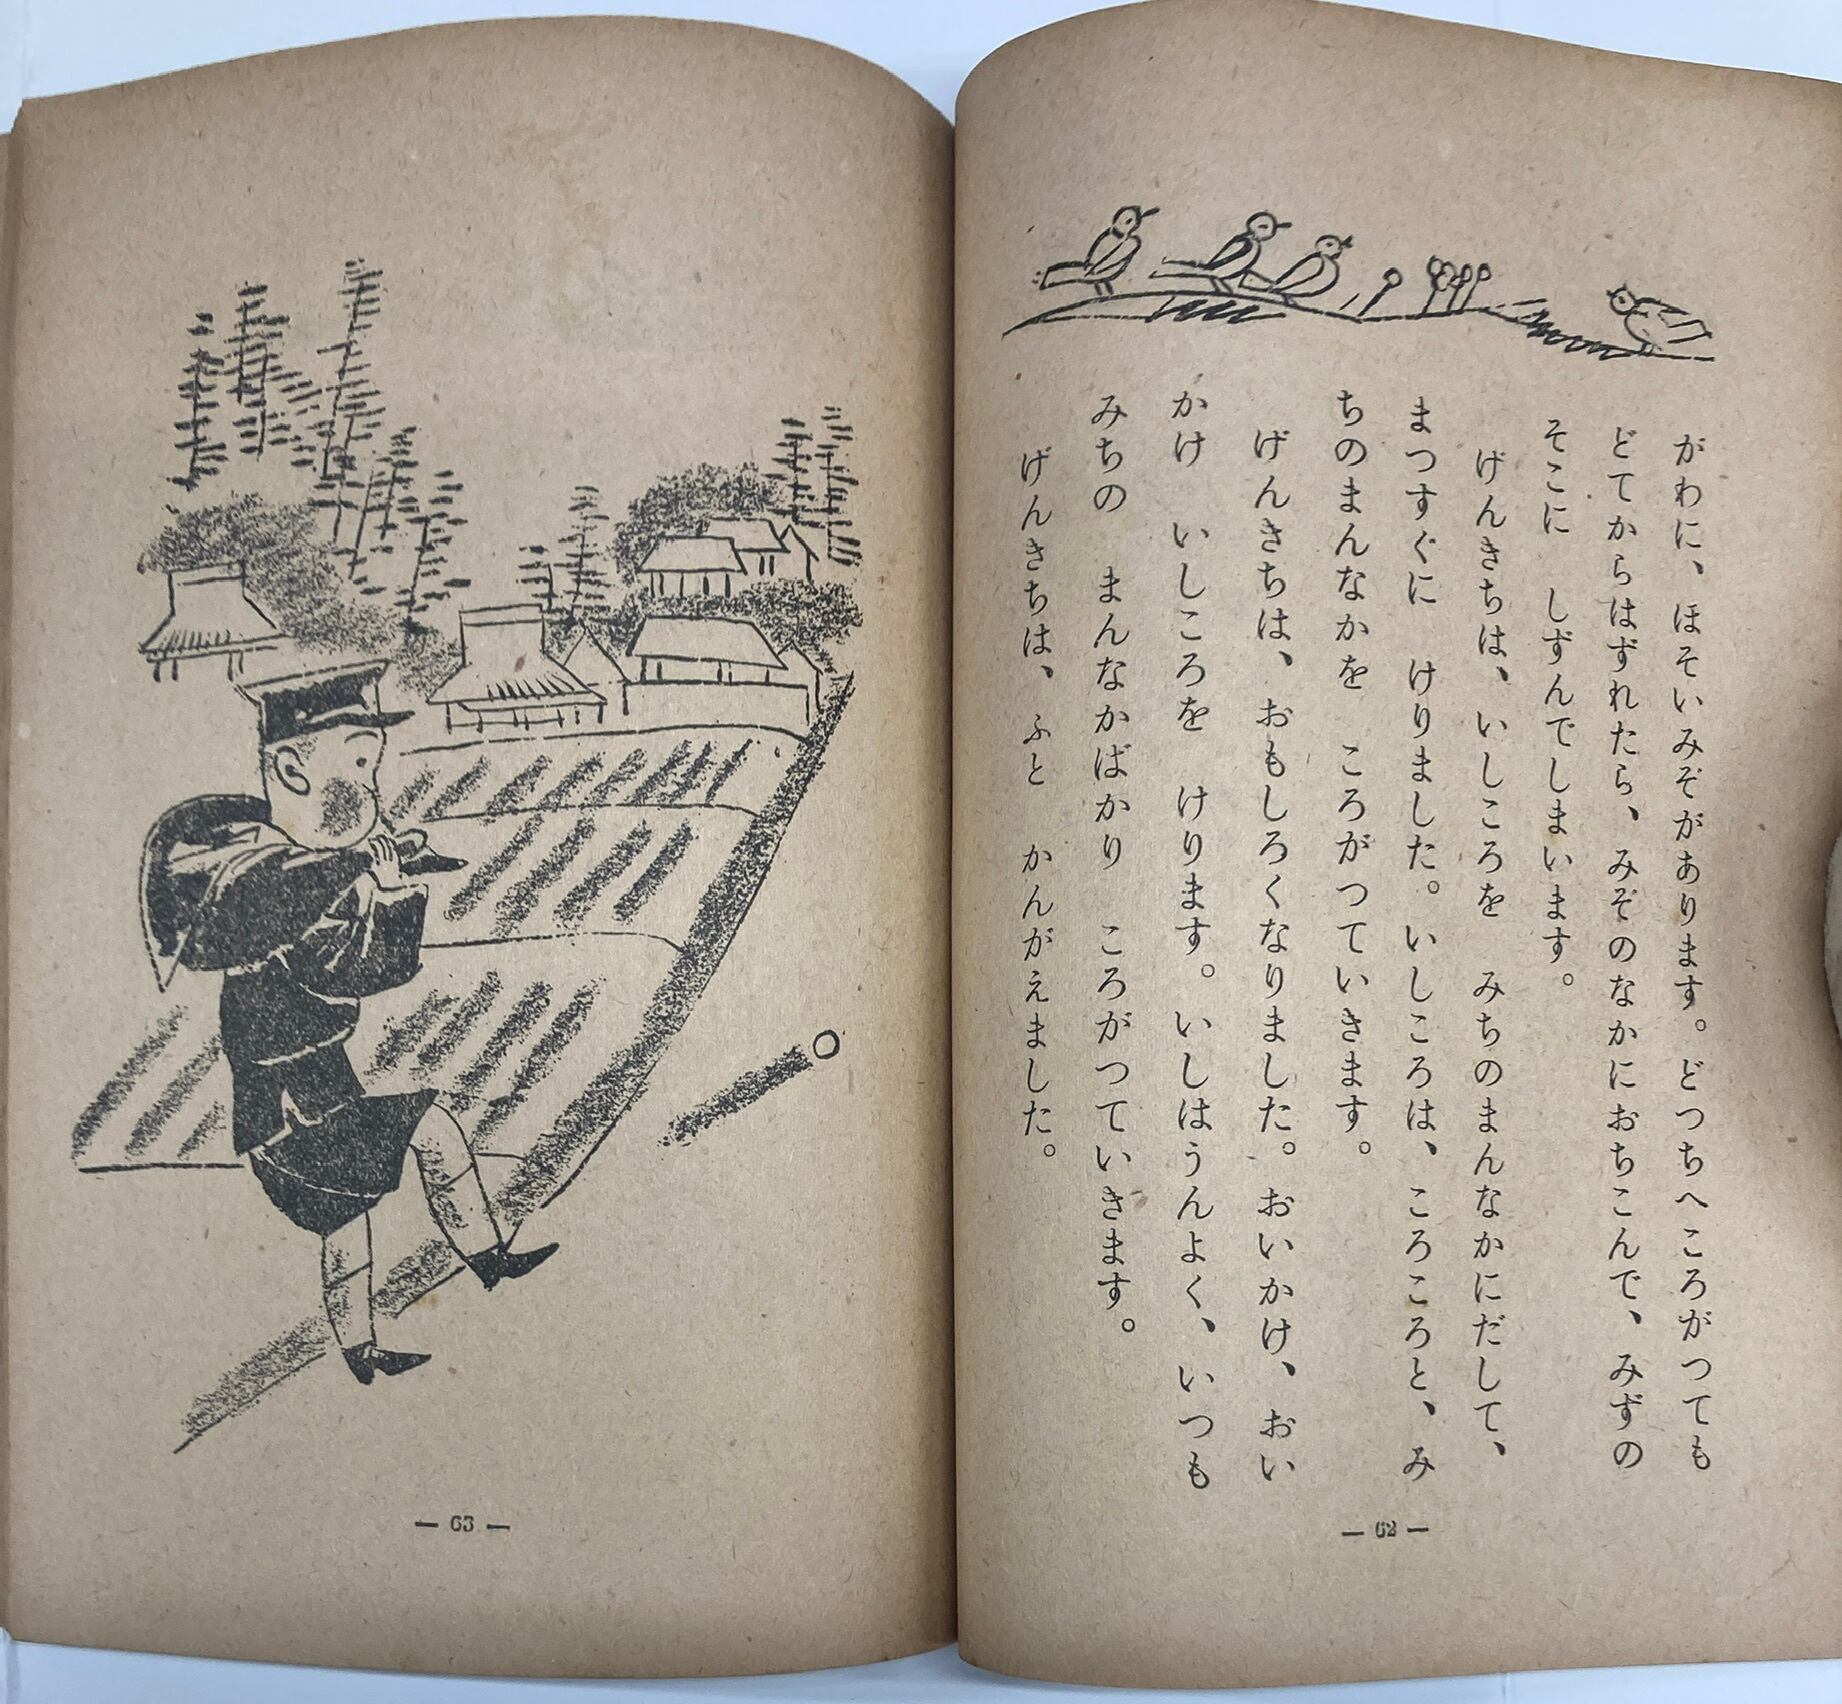 がわに、ほそいみぞがあります。どつちへころがつても
どてからはずれたら、みぞのなかにおちこんで、みずの
そこに しずんでしまいます。
げんきちは、いしころを みちのまんなかにだして、
まつすぐに けりました。いしころは、ころころと、み
ちのまんなかを ころがつていきます。
げんきちは、おもしろくなりました。おいかけ、おい
かけ いしころを けります。いしはうんよく、いつも
みちの まんなかばかり ころがつていきます。
げんきちは、ふと かんがえました。
— 62 —
— 63 —